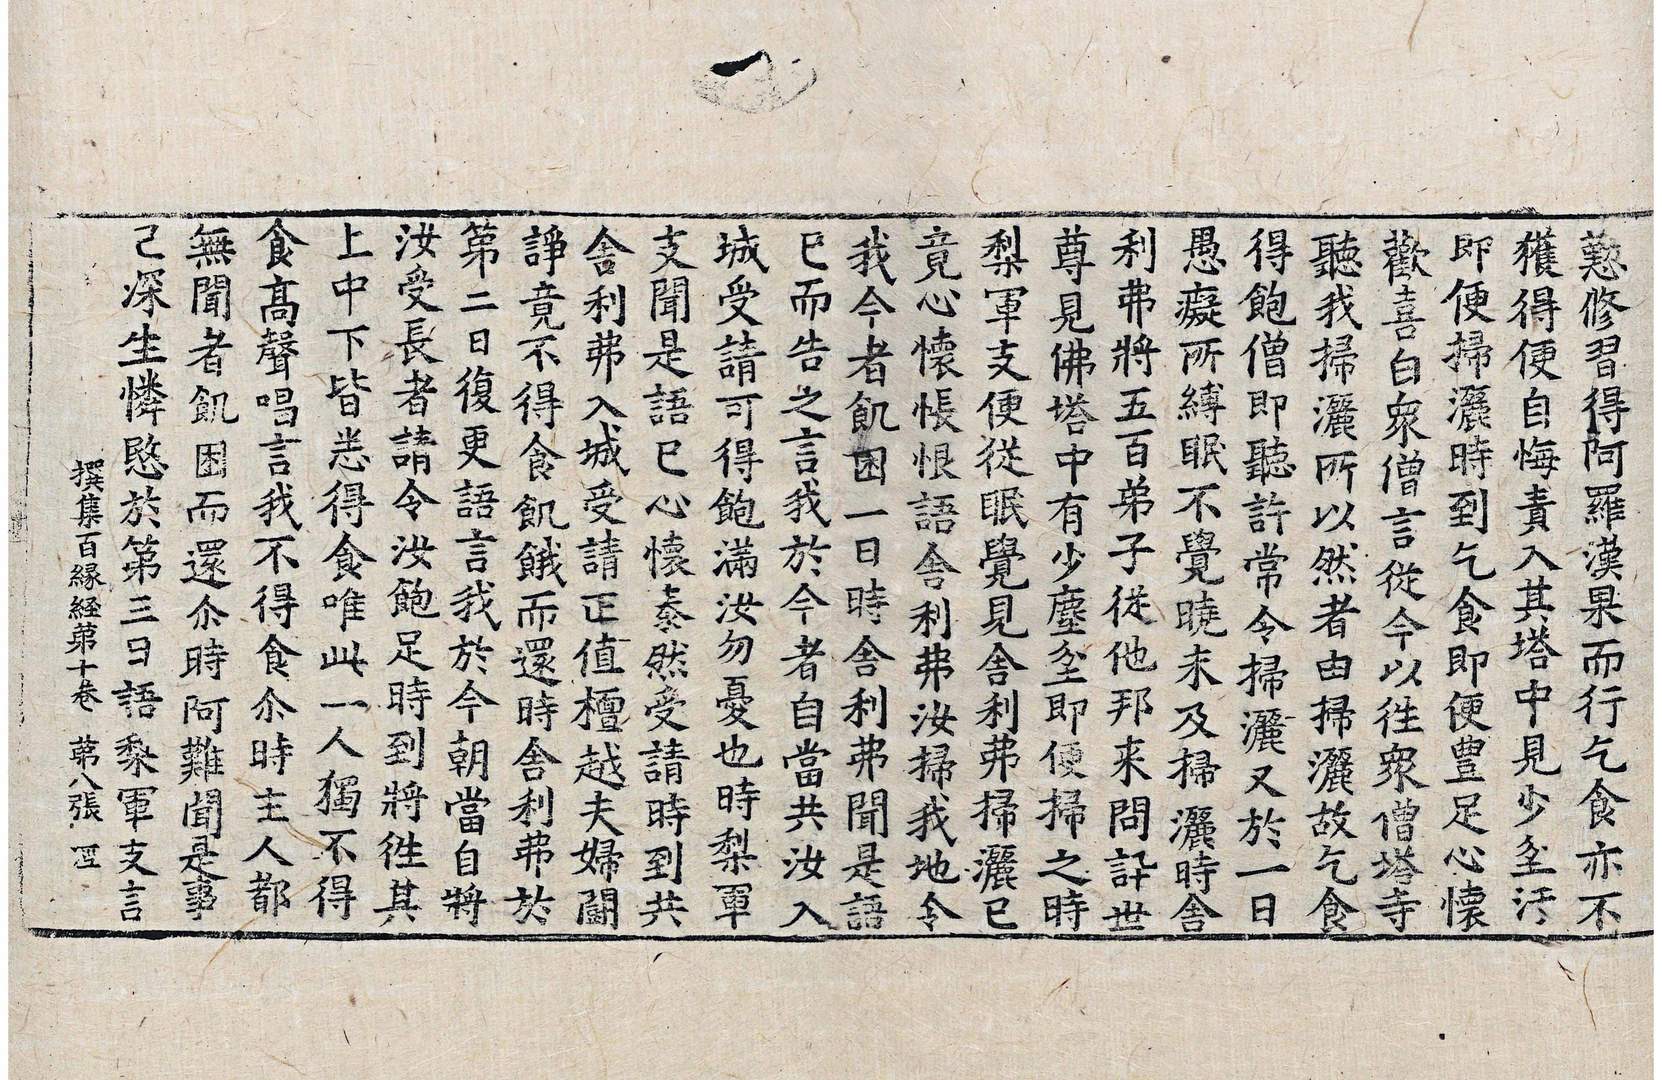 懃修習得阿羅漢果而行乞食亦不
獲得便自悔責入其塔中見少坌汙
即便掃灑時到乞食即便豊足心懷
歡喜白衆僧言從今以徃衆僧塔寺
聽我掃灑所以然者由掃灑故乞食
得飽僧即聽許常令掃灑又於一日
愚癡所縛眠不覺曉未及掃灑時舎
利弗將五百弟子從他邦来問訊世
尊見佛塔中有少塵坌即便掃之時
梨軍支便從眠覺見舎利弗掃灑已
竟心懷悵恨語舎利弗汝掃我地令
我今者飢困一日時舎利弗聞是語
已而告之言我於今者自當共汝入
城受請可得飽滿汝勿憂也時梨軍
支聞是語已心懷泰然受請時到共
舎利弗入城受請正值檀越夫婦鬪
諍竟不得食飢餓而還時舎利弗於
第二日復更語言我於今朝當自將
汝受長者請令汝飽足時到將徃其
上中下皆悉得食唯此一人獨不得
食髙聲唱言我不得食尒時主人都
無聞者飢困而還尒時阿難聞是事
已深生憐愍於第三日語梨軍支言
撰集百縁経第十卷　第八張